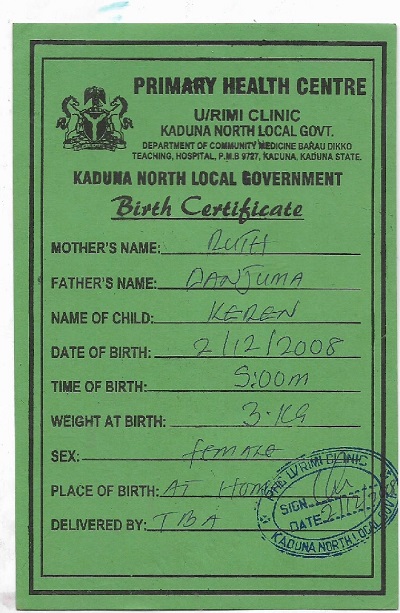 PRIMARY HEALTH CENTRE
U/RIMI CLINIC
KADUNA NORTH LOCAL GOVT.
DEPARTMENT OF COMMUNITY MEDICINE BARAU DIKKO
TEACHING, HOSPITAL, P.M.B 9727, KADUNA, KADUNA STATE.
KADUNA NORTH LOCAL GOVERNMENT
Birth Certificate
MOTHER'S NAME: RUTH
FATHER'S NAME: DANJUMA
NAME OF CHILD: KEREN
DATE OF BIRTH: 2/12/2008
TIME OF BIRTH: 5:00m
WEIGHT AT BIRTH: 3.KG
SEX: female
PLACE OF BIRTH: AT HOME
DELIVERED BY: TBA
PHC U/RIMI CLINIC
SIGN
DATE 2/12/
KADUNA NORTH LOCAL GOVT